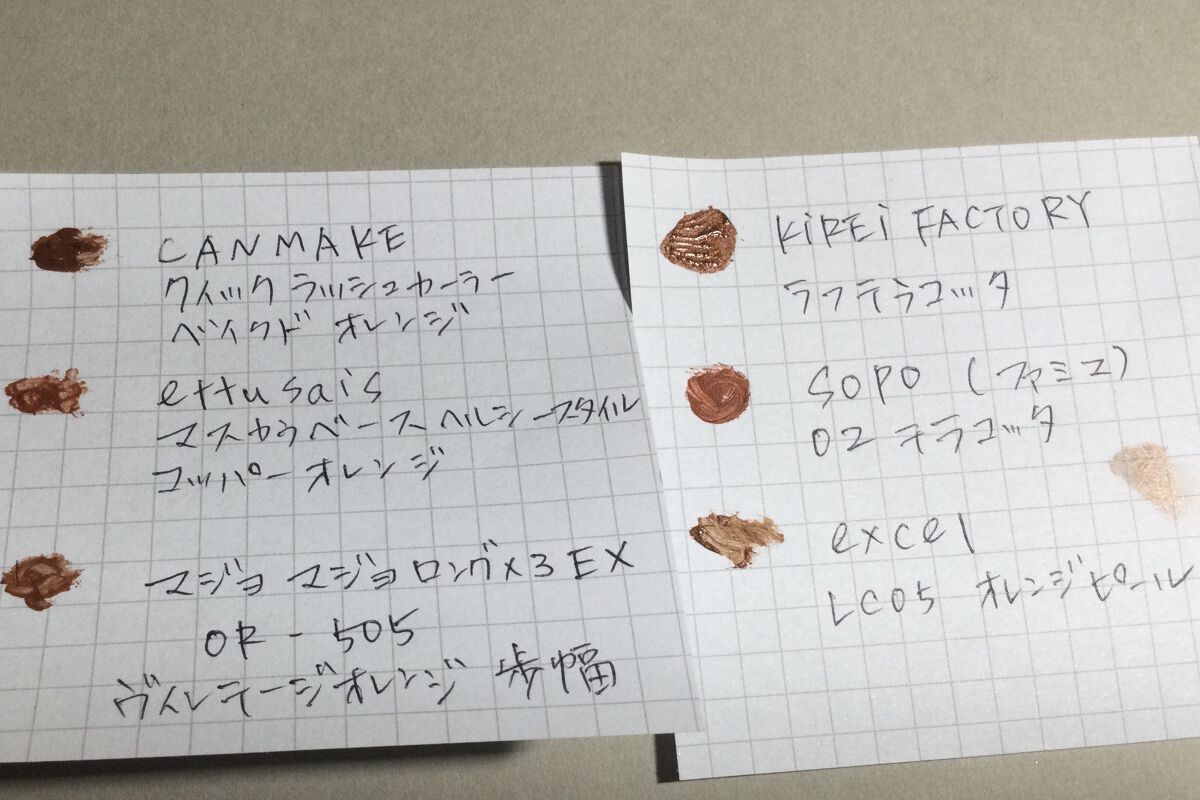 CANMAKE
クイックラッシュカーラー
ベイクドオレンジ
ettusais
マスカラベース ヘルシースタイル
コッパーオレンジ
マジョマジョ ロングx3 EX
OR-505
ヴィンテージオレンジ 歩幅
KiREi FACTORY
ラフテラコッタ
SOPO (ファミマ)
02 テラコッタ
excel
LC05 オレンジピール